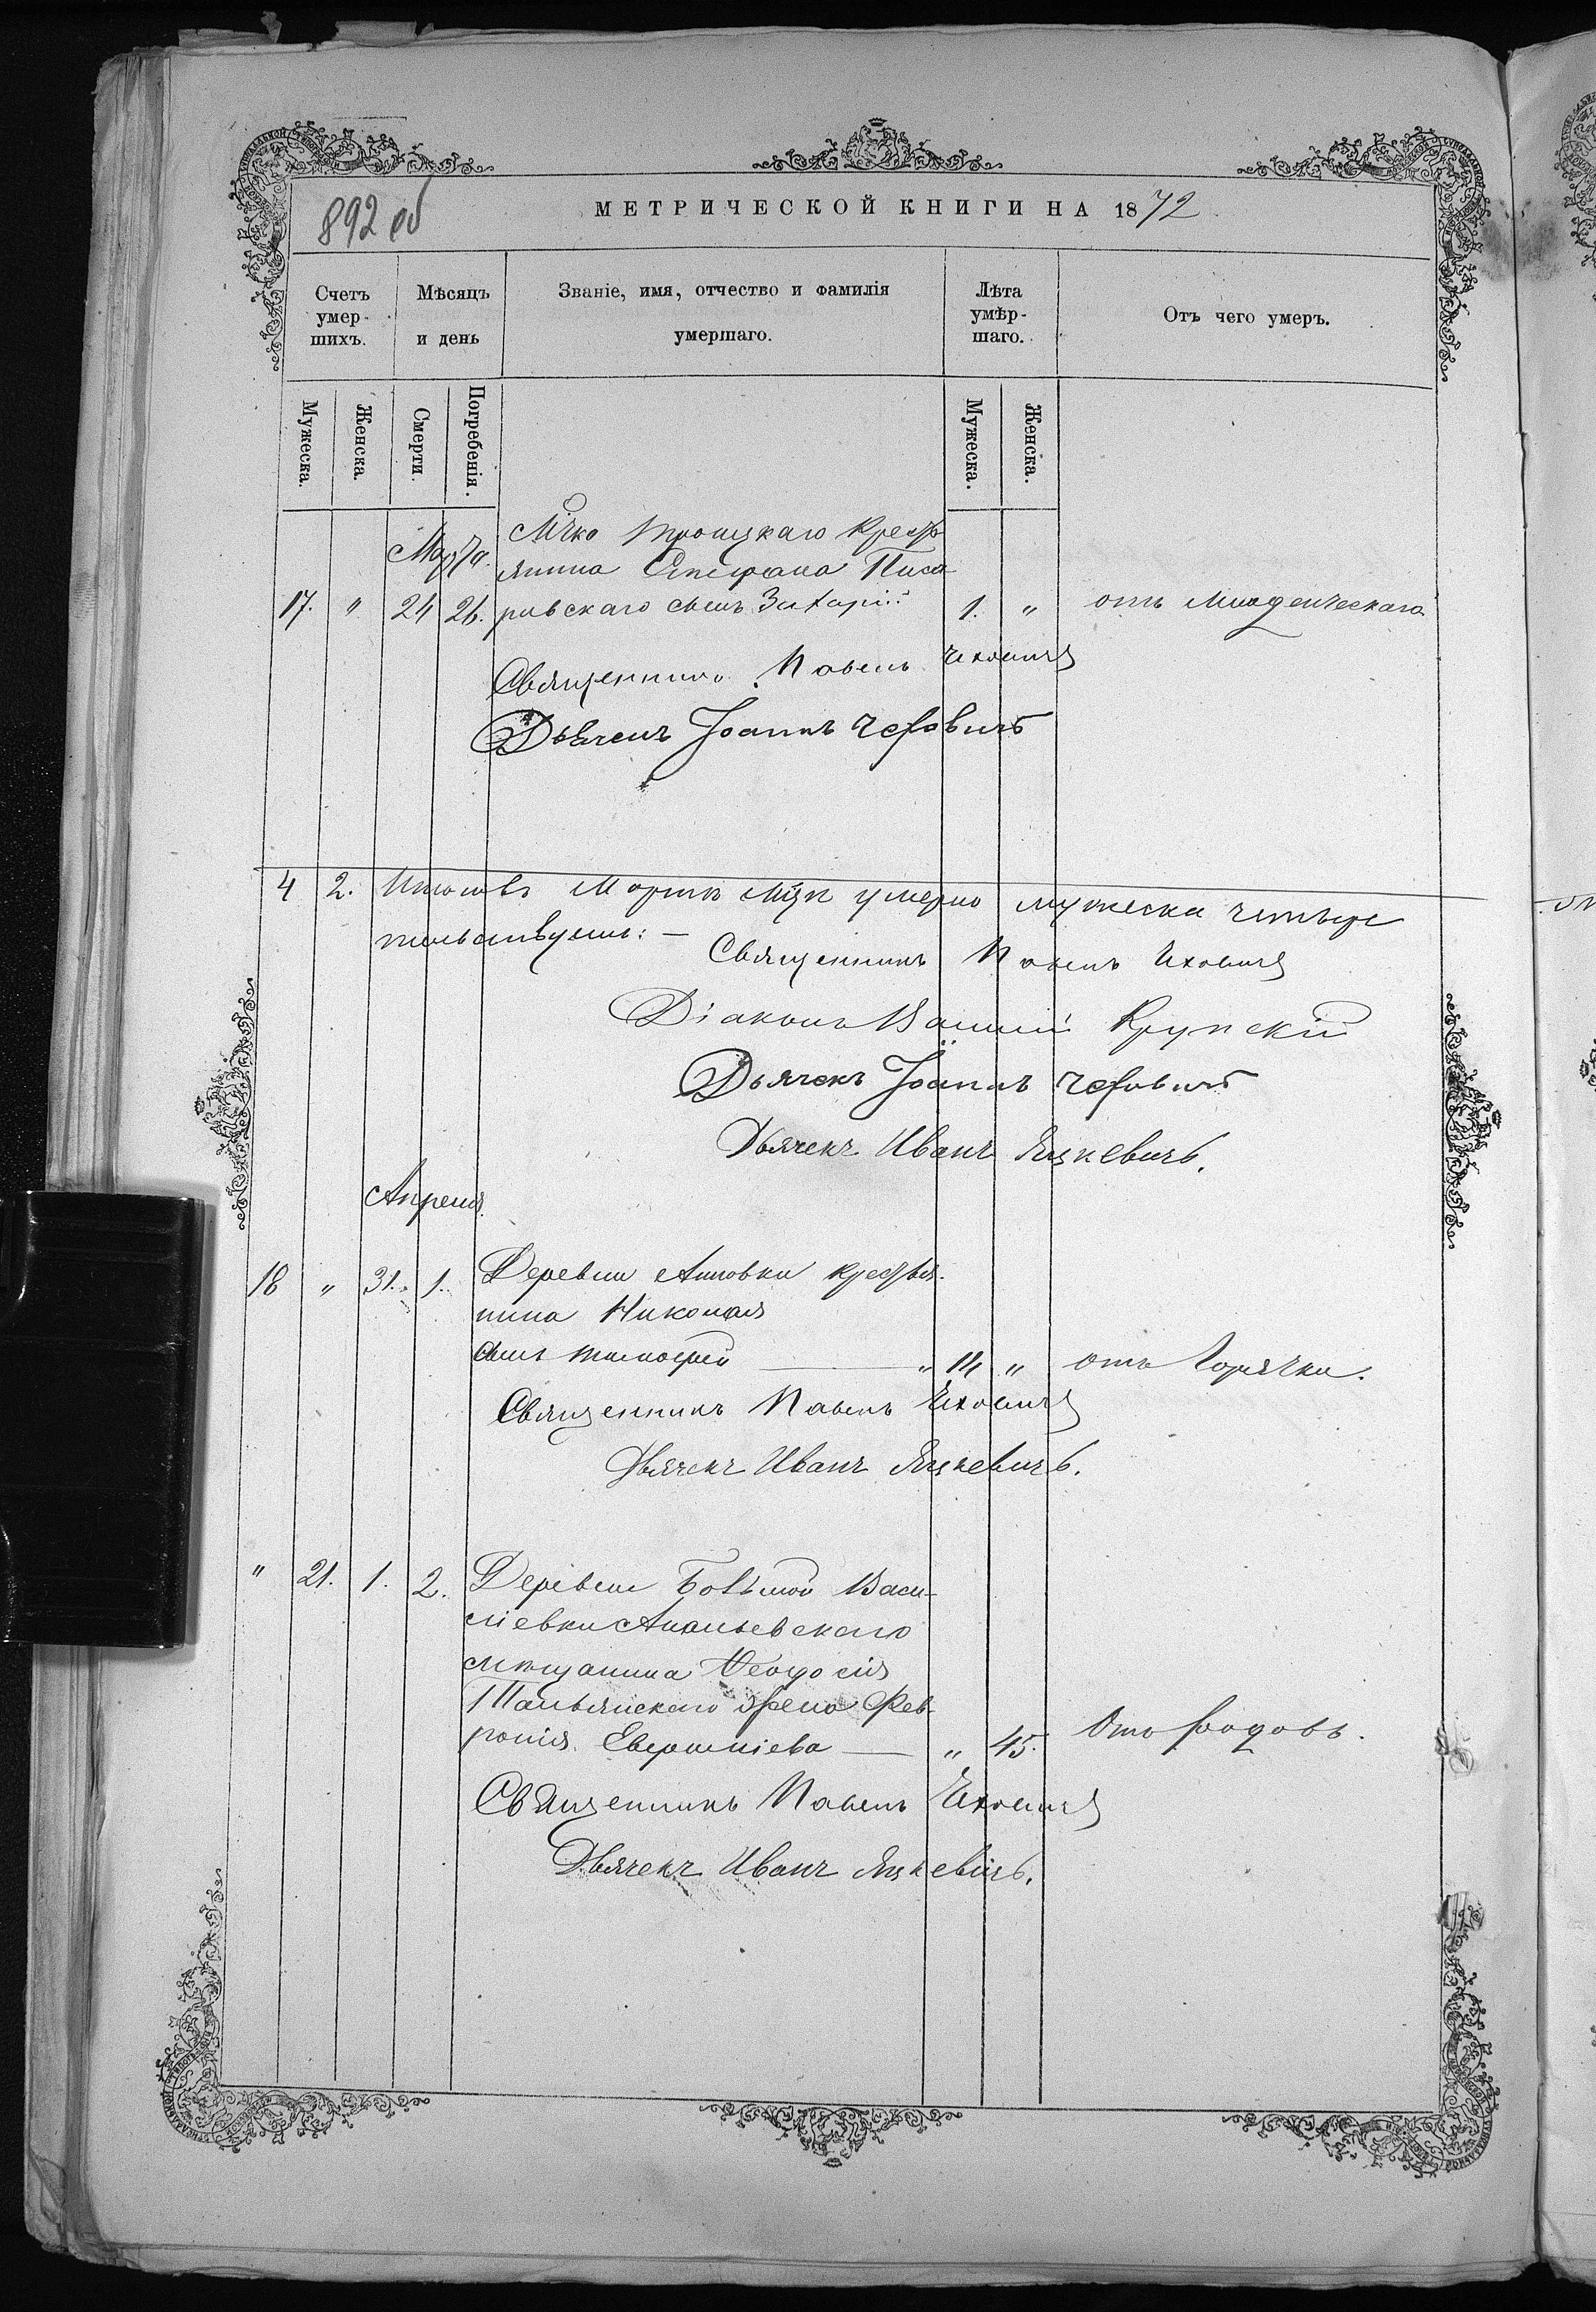 892 об
МЕТРИЧЕСКОЙ КНИГИ НА 1872
Счетъ умер-шихъ.
Мѣсяцъ и день
Званіе, имя, отчество и фамилія умершаго.
Лѣта умѣр-шаго.
Отъ чего умеръ.
Мужеска.
Женска.
Смерти.
Погребенія.
Мужеска.
Женска.
Марта.
М-чко Троицкаго Кресть
янина Стефана Писа
17. " 24 26. ровскаго сынъ Захарій 1. " отъ младенческаго
Священникъ Павелъ
Дьячекъ Іоаннъ
4 2. Итого въ Мартѣ м-цѣ умерло мужеска четыре
Священникъ Павелъ
Діаконъ Василій Крупскій
Дьячекъ Іоаннъ
Дьячекъ Иванъ Яцкевичъ.
Апреля
18 " 31. 1. Деревни Анновки крестья-
нина Николая
сынъ Тимофей " 14 " отъ Горячки.
Священникъ Павелъ
Дьячекъ Иванъ Яцкевичъ.
" 21. 1. 2. Деревни Большой Васи-
ліевки Ананьевскаго
мѣщанина Ѳеодосія
жена Фев-
ронія " 45. Отъ родовъ.
Священникъ Павелъ
Дьячекъ Иванъ Яцкевичъ.